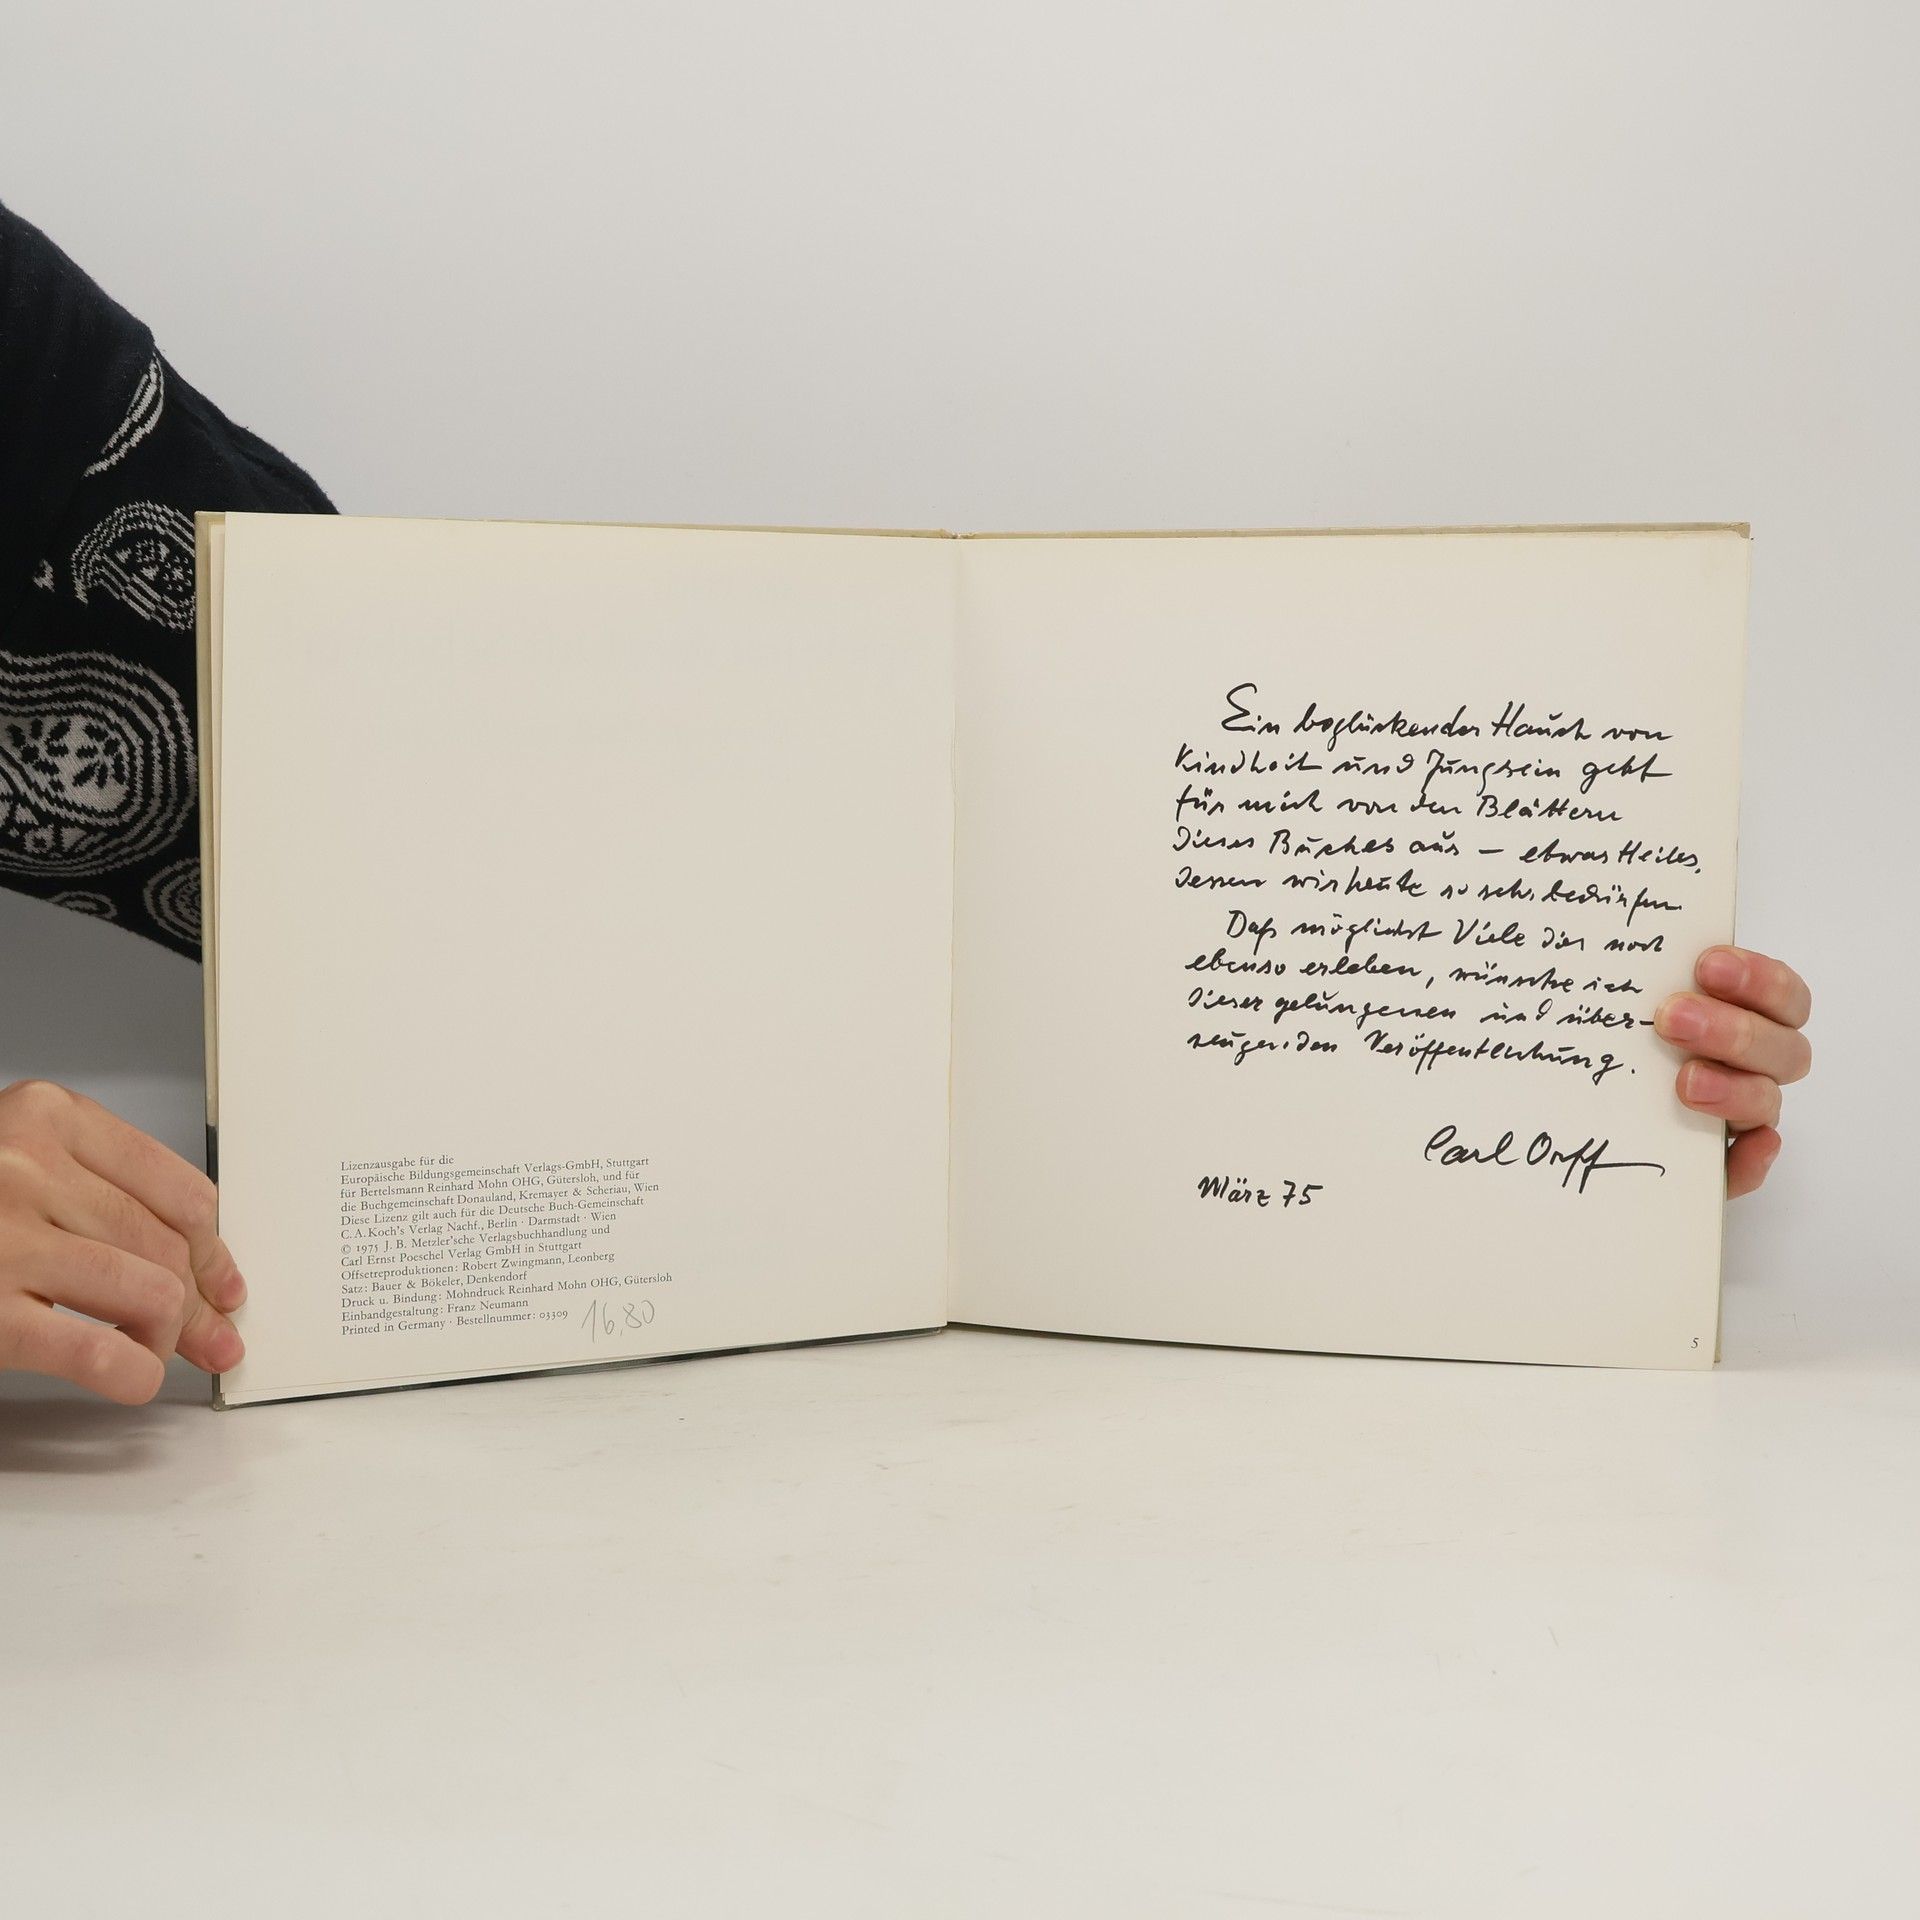 Lizenzausgabe für die
Europäische Bildungsgemeinschaft Verlags-GmbH, Stuttgart
für Bertelsmann Reinhard Mohn OHG, Gütersloh, und für
die Buchgemeinschaft Donauland, Kremayer & Scheriau, Wien
Diese Lizenz gilt auch für die Deutsche Buch-Gemeinschaft
C. A. Koch's Verlag Nachf., Berlin · Darmstadt · Wien
© 1975 J. B. Metzler'sche Verlagsbuchhandlung und
Carl Ernst Poeschel Verlag GmbH in Stuttgart
Offsetreproduktionen: Robert Zwingmann, Leonberg
Satz: Bauer & Bökeler, Denkendorf
Druck u. Bindung: Mohndruck Reinhard Mohn OHG, Gütersloh
Einbandgestaltung: Franz Neumann
Printed in Germany · Bestellnummer: 03309
16,80
Ein beglückender Hauch von
Kindheit und Jungsein geht
für mich von den Blättern
dieses Buches aus – etwas Heiles,
dessen wir heute so sehr bedürfen.
Daß möglichst Viele dies noch
ebenso erleben, wünsche ich
dieser gelungenen und über-
zeugenden Veröffentlichung.
Carl Orff
März 75
5